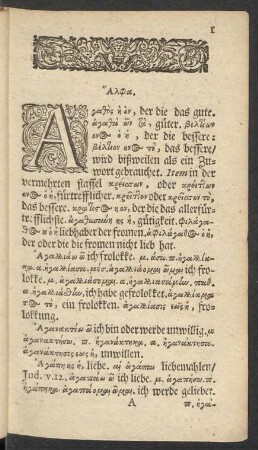 1
Ἄλφα.
Ἀγαθὸς ἡ όν, der die das gute.
ἀγαθῶ ὧν ῷ, güter. βελτίων
ονος ὁ ἡ, der die bessere:
βέλτιον ονος τὸ, das bessere/
wird bißweilen als ein Zu-
wort gebrauchet. Item in der
vermehrten staffel κρείσσων, oder κρείττων
ονος ὁ ἡ, fürtrefflicher. κρεῖττον oder κρεῖσσον τὸ,
das bessere. κράτιστος η ον, der die das allerfür-
trefflichste. ἀγαθωσύνη ης ἡ, gütigkeit. φιλάγα-
θος ὁ ἡ liebhaber der fromen, ἀφιλάγαθος ὁ ἡ,
der oder die die fromen nicht lieb hat.
Ἀγαλλιάω ῶ ich frolokke. μ. άσω. π. ἠγαλλία-
κα. α. ἠγαλλίασα. μέσ. ἀγαλλιάομαι ῶμαι ich fro-
lokke. μ. ἀγαλλιάσομαι, α. ἠγαλλιασάμην, παθ.
ἠγαλλιάθην, ich habe gefrolokket. ἀγαλλίαμα
τος τὸ, ein frolokken. ἀγαλλίασις εως ἡ, fro-
lokkung.
Ἀγανακτέω ῶ ich bin oder werde unwillig. μ.
ἀγανακτήσω. π. ἠγανάκτηκα. α. ἠγανάκτησα.
ἀγανάκτησις εως ἡ, unwillen.
Ἀγάπη ης ἡ, liebe. αἱ ἀγάπαι liebemahlen/
Jud. v.12. ἀγαπάω ῶ ich liebe. μ. ἀγαπήσω. π.
ἠγάπηκα. ἀγαπάομαι ῶμαι, ich werde geliebet.
A π. ἠγά-